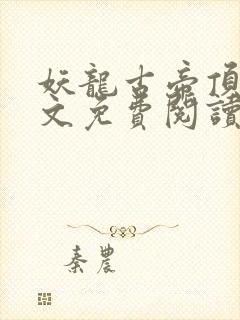 妖龍古帝頂
文免費閱讀
秦農